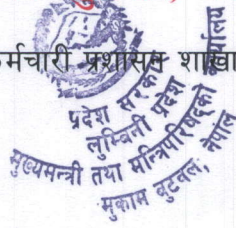 कर्मचारी प्रशासन शाखा
प्रदेश सरकार
लुम्बिनी प्रदेश
मुख्यमन्त्री तथा मन्त्रिपरिषद्को कार्यालय
मुकाम बुटवल, नेपाल